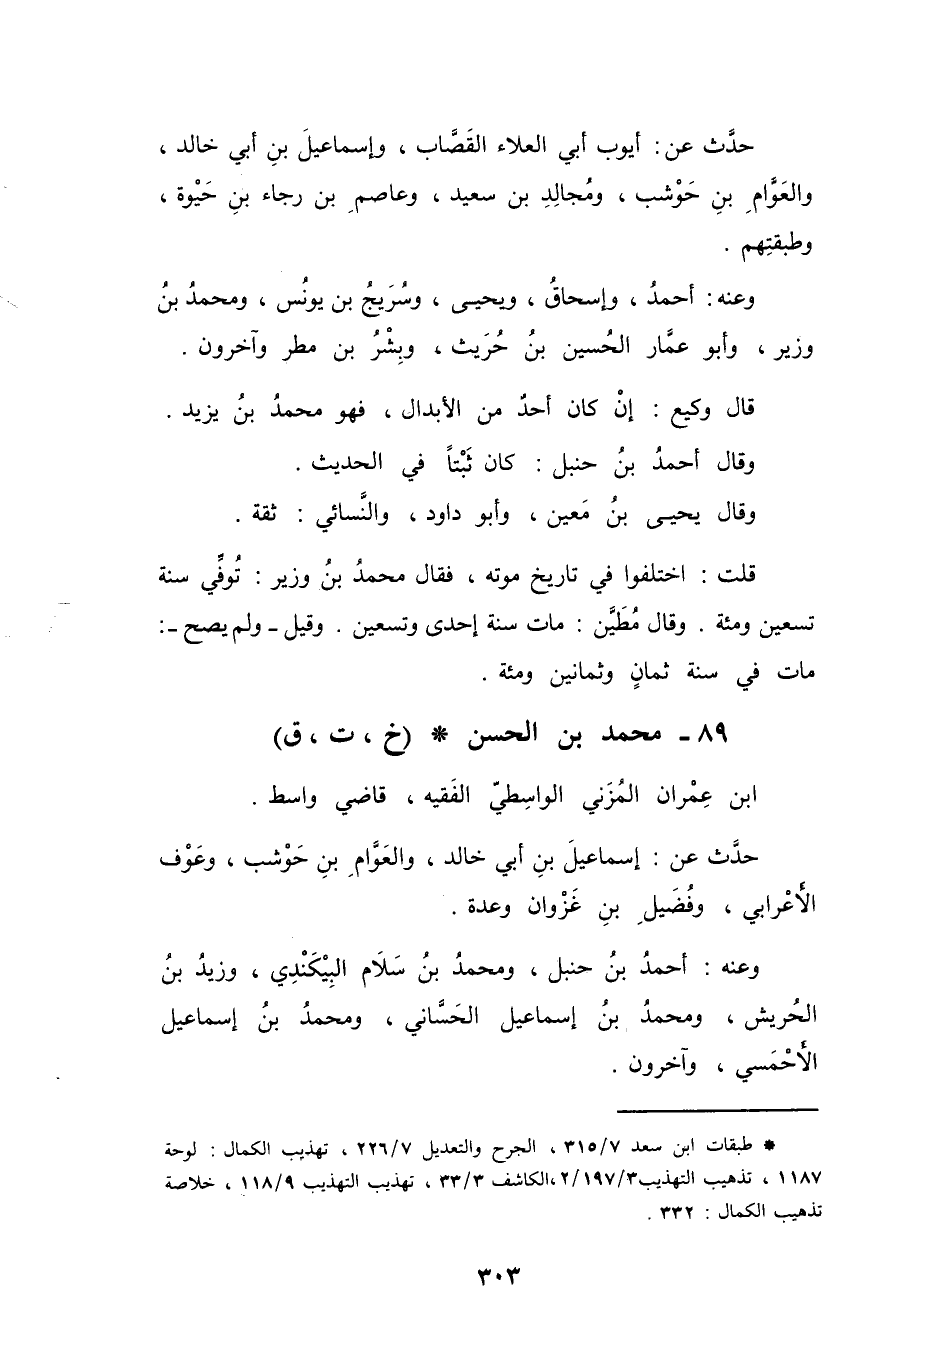 حدَّث عن : أيوب أبي العلاء القَصَّاب ، وإسماعيلَ بنِ أبي خالد ،
والعَوَّامِ بنِ حَوْشب ، ومُجالِدِ بن سعيد ، وعاصمِ بن رجاء بنِ حَيْوة ،
وطبقتِهم .
وعنه : أحمدُ ، وإسحاقُ ، ويحيى ، وسُرَيجُ بن يونُس ، ومحمدُ بنُ
وزير ، وأبو عمَّار الحُسين بنُ حُرَيث ، وبِشْرُ بن مطر وآخرون .
قال وكيع : إنْ كان أحدٌ من الأبدال ، فهو محمدُ بنُ يزيد .
وقال أحمدُ بنُ حنبل : كان ثَبْتاً في الحديث .
وقال يحيى بنُ مَعين ، وأبو داود ، والنَّسائي : ثقة .
قلت : اختلفوا في تاريخ موته ، فقال محمدُ بنُ وزير : تُوفِّي سنة
تسعين ومئة . وقال مُطَيَّن : مات سنة إحدى وتسعين . وقيل ـ ولم يصح ـ :
مات في سنة ثمانٍ وثمانين ومئة .
٨٩ ـ محمد بن الحسن * (خ ، ت ، ق)
ابن عِمْران المُزَني الواسِطيّ الفَقيه ، قاضي واسط .
حدَّث عن : إسماعيلَ بنِ أبي خالد ، والعَوَّامِ بنِ حَوْشب ، وعَوْف
الأَعْرابي ، وفُضَيلِ بنِ غَزْوان وعدة .
وعنه : أحمدُ بنُ حنبل ، ومحمدُ بنُ سَلَام البِيْكَنْدِي ، وزيدُ بنُ
الحُريش ، ومحمدُ بنُ إسماعيل الحَسَّاني ، ومحمدُ بنُ إسماعيل
الأَحْمَسي ، وآخرون .
* طبقات ابن سعد ٣١٥/٧ ، الجرح والتعديل ٢٢٦/٧ ، تهذيب الكمال : لوحة
١١٨٧ ، تذهيب التهذيب ٢/١٩٧/٣ ،الكاشف ٣٣/٣ ، تهذيب التهذيب ١١٨/٩ ، خلاصة
تذهيب الكمال : ٣٣٢ .
٣٠٣